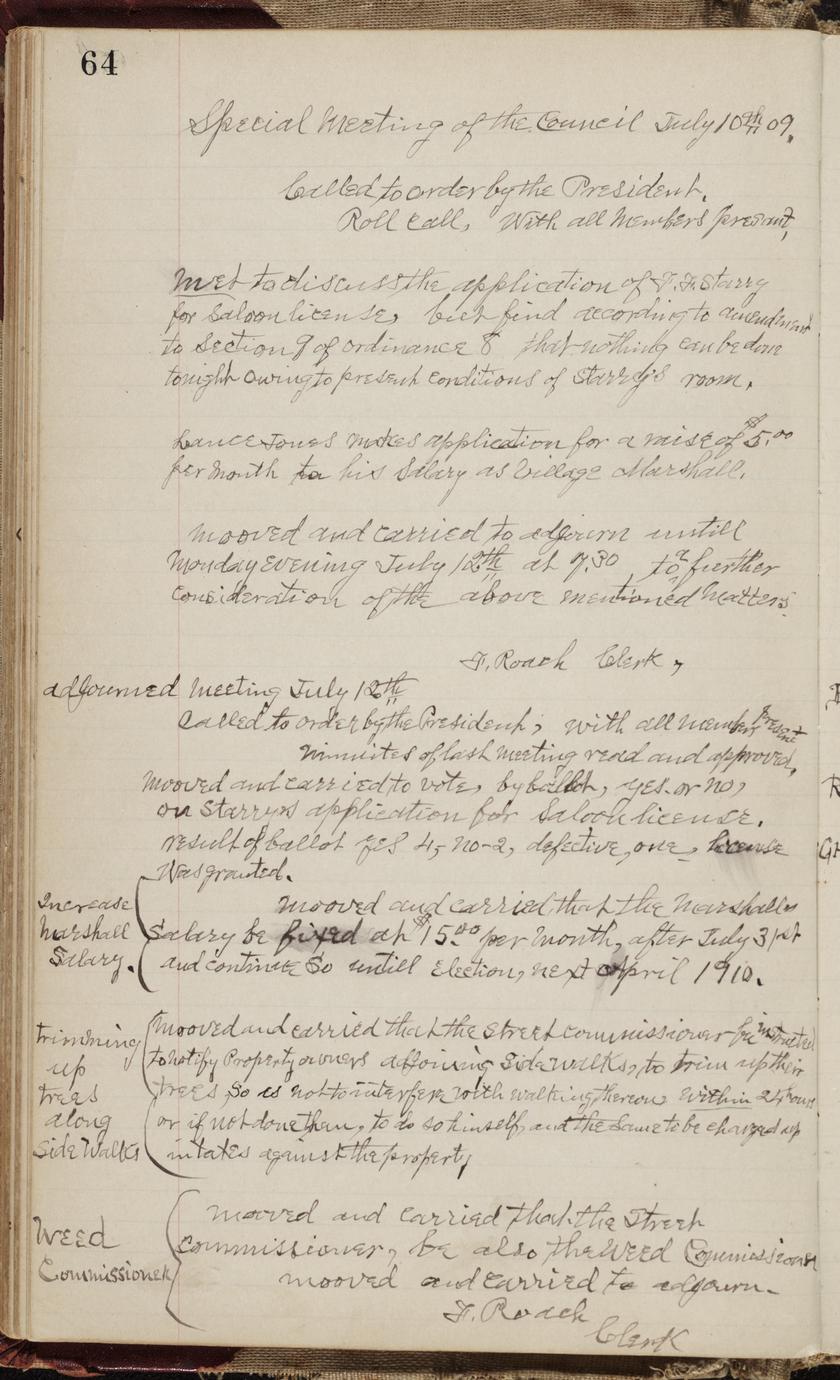 64
Special Meeting of the Council July 10th 09.
Called to order by the President.
Roll Call, With all Members present,
Met to discuss the application of T. F. Starry
for Saloon license, but find according to amendment
to Section 9 of ordinance 8 that nothing can be done
tonight owing to present conditions of Starry's room.
Lance Jones makes application for a raise of $5.00
per month to his Salary as Village Marshall.
mooved and carried to adjourn untill
Monday evening July 12th at 7.30 to further
consideration of the above mentioned Matters.
F. Roach Clerk,
adjourned Meeting July 12th
Called to order by the President, with all members present
minuites of last meeting read and approved,
mooved and carried to vote, by ballot, yes. or no,
on Starrys application for Saloon license.
result of ballot yes 4, no-2, defective, one, license
Was granted.
Increase
Marshall
Salary.
mooved and carried that the Marshalls
Salary be fixed at $15.00 per Month, after July 31st
and continue So untill Election, next april 1910.
trimming
up
trees
along
Side Walks
mooved and carried that the street commissioner be instructed
to notify Property owners adjoining Side walks, to trim up their
trees, So as not to interfere with walking thereon, within 24 hours
or if not done then, to do so himself, and the Same to be charged up
in taxes against the property,
Weed
Commissioner
mooved and carried that the Street
Commissioner, be also the Weed Commissioner
mooved and carried to adjourn.
F. Roach
Clerk